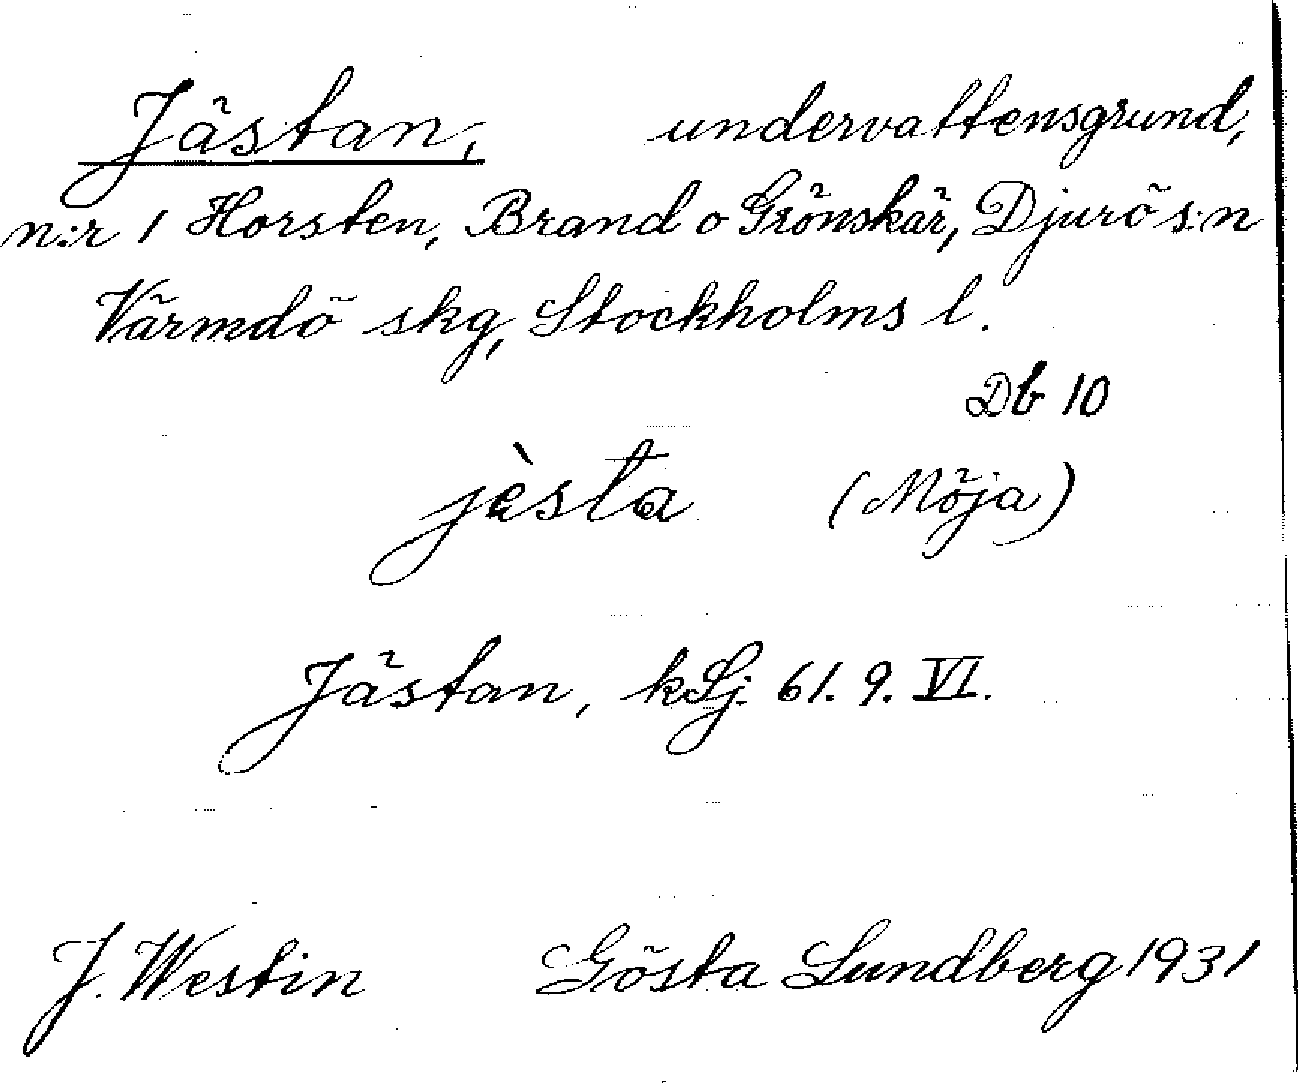 Jästan, undervattensgrund,
n:r 1 Horsten, Brand o Grönskär, Djurö s:n
Värmdö skg, Stockholms l.
Db 10
jèsta (Möja)
Jästan, kSj. 61. 9. VI.
J. Westin Gösta Lundberg 1931